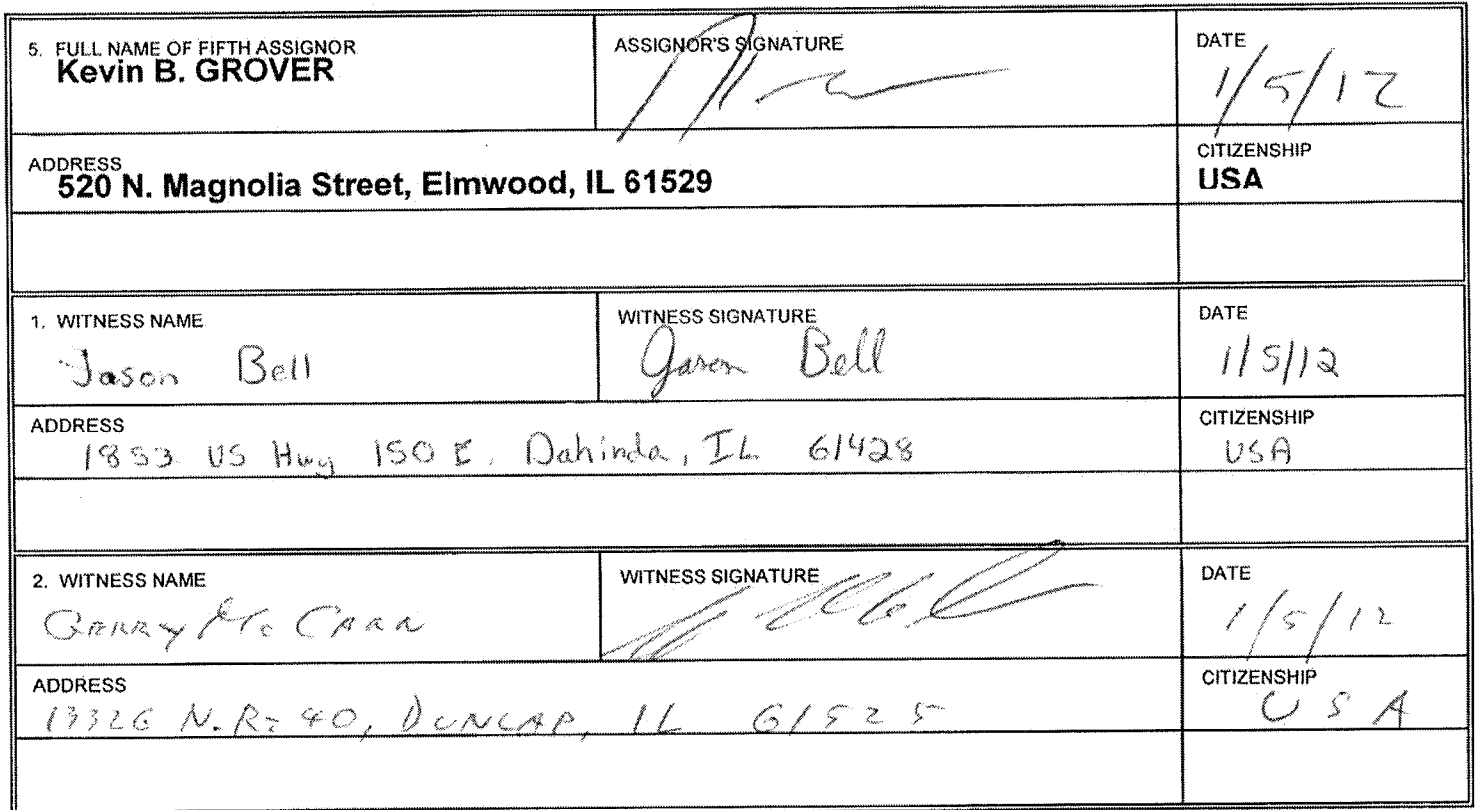 5. FULL NAME OF FIFTH ASSIGNOR
Kevin B. GROVER
ASSIGNOR'S SIGNATURE
DATE
1/5/12
ADDRESS
520 N. Magnolia Street, Elmwood, IL 61529
CITIZENSHIP
USA
1. WITNESS NAME
Jason Bell
WITNESS SIGNATURE
Jason Bell
DATE
1/5/12
ADDRESS
1853 US Hwy 150 E. Dahinda, IL 61428
CITIZENSHIP
USA
2. WITNESS NAME
GERRY
WITNESS SIGNATURE
DATE
1/5/12
ADDRESS
13326 N. Rt 40, DUNLAP, IL 61525
CITIZENSHIP
USA